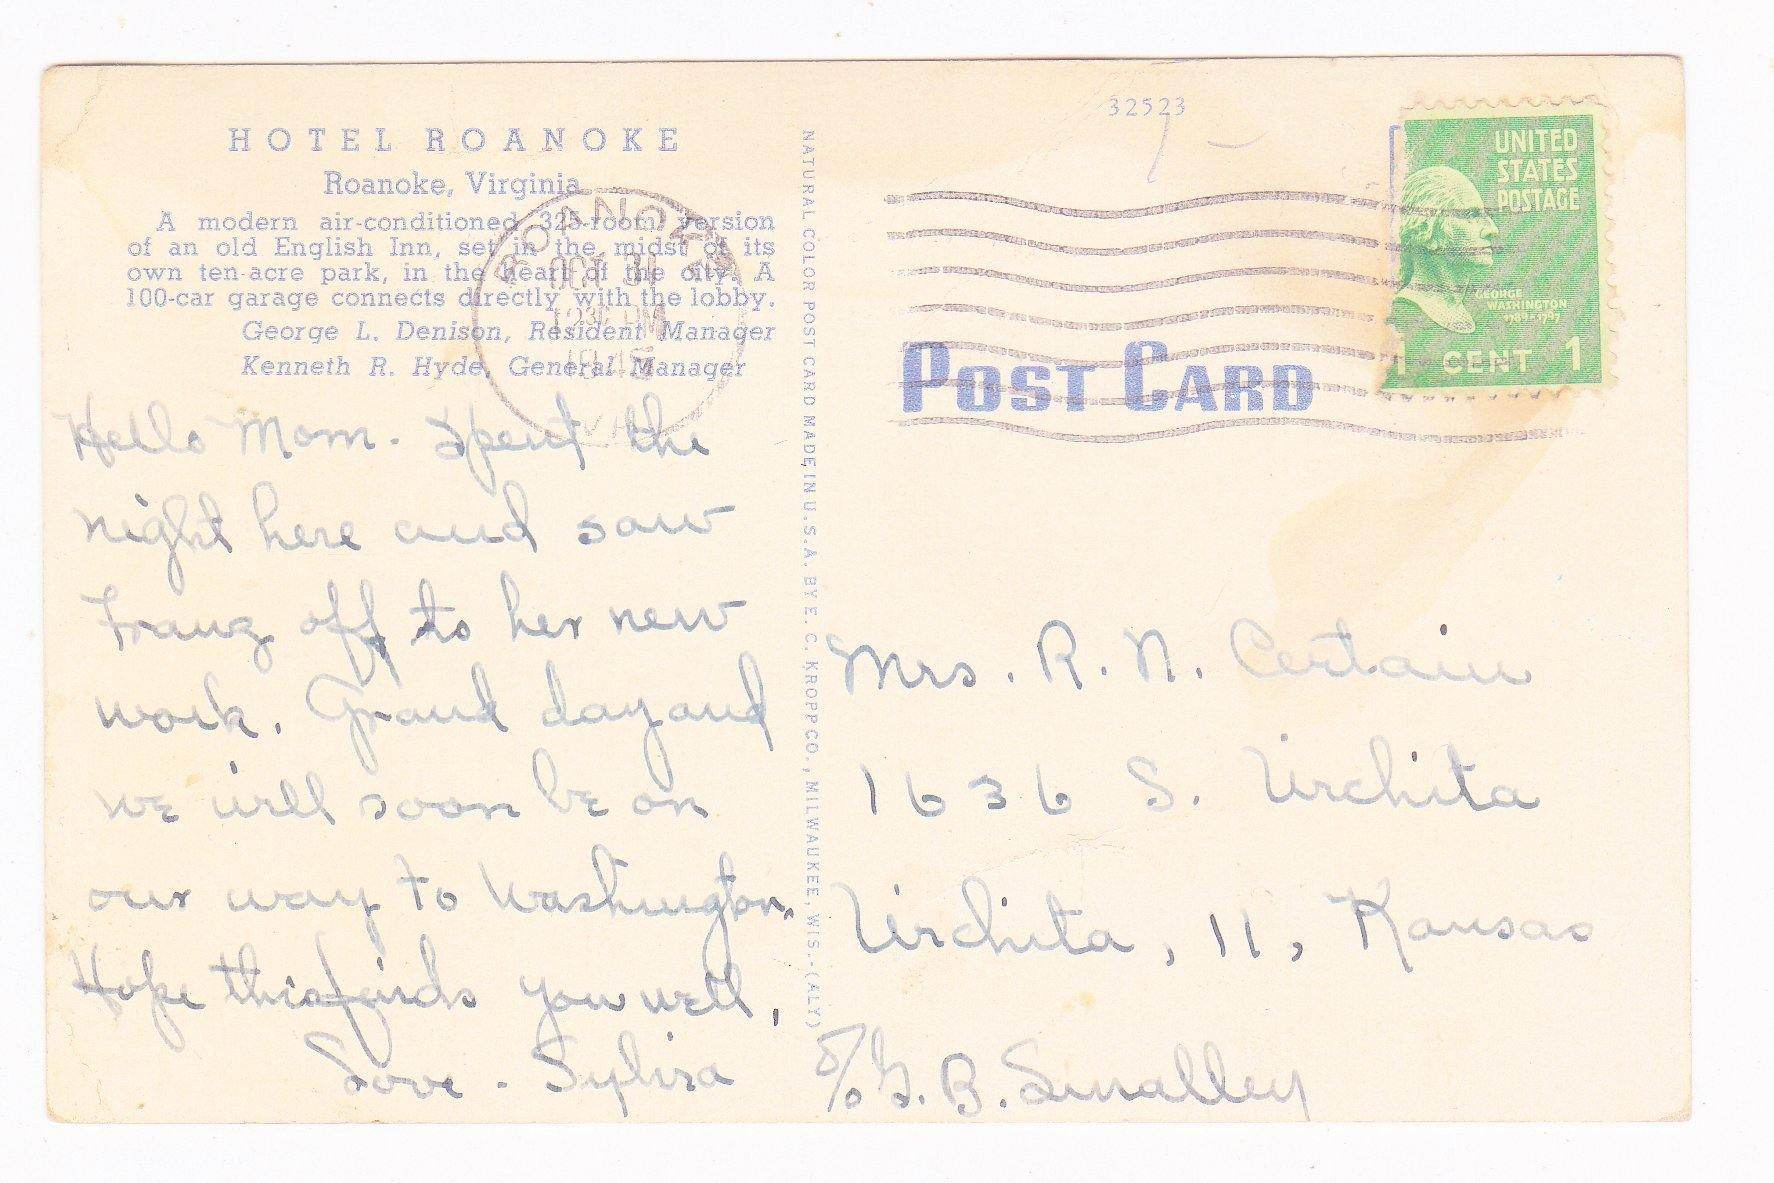 HOTEL ROANOKE
Roanoke, Virginia
A modern air-conditioned 325-room version
of an old English Inn, set in the midst of its
own ten-acre park, in the heart of the city. A
100-car garage connects directly with the lobby.
George L. Denison, Resident Manager
Kenneth R. Hyde, General Manager
ROANOKE
OCT 31
1230 PM
VA
Hello Mom - Spent the
night here and saw
off to her new
work. Grand day and
we will soon be on
our way to Washington.
Hope this finds you well,
Love - Sylvia
NATURAL COLOR POST CARD MADE IN U.S.A. BY E. C. KROPP CO., MILWAUKEE, WIS.-(ALY)
32523
UNITED
STATES
POSTAGE
GEORGE
WASHINGTON
1789-1797
1 CENT 1
POST CARD
Mrs. R. N. Certain
1636 S. Wichita
Wichita, 11, Kansas
G. B. Smalley